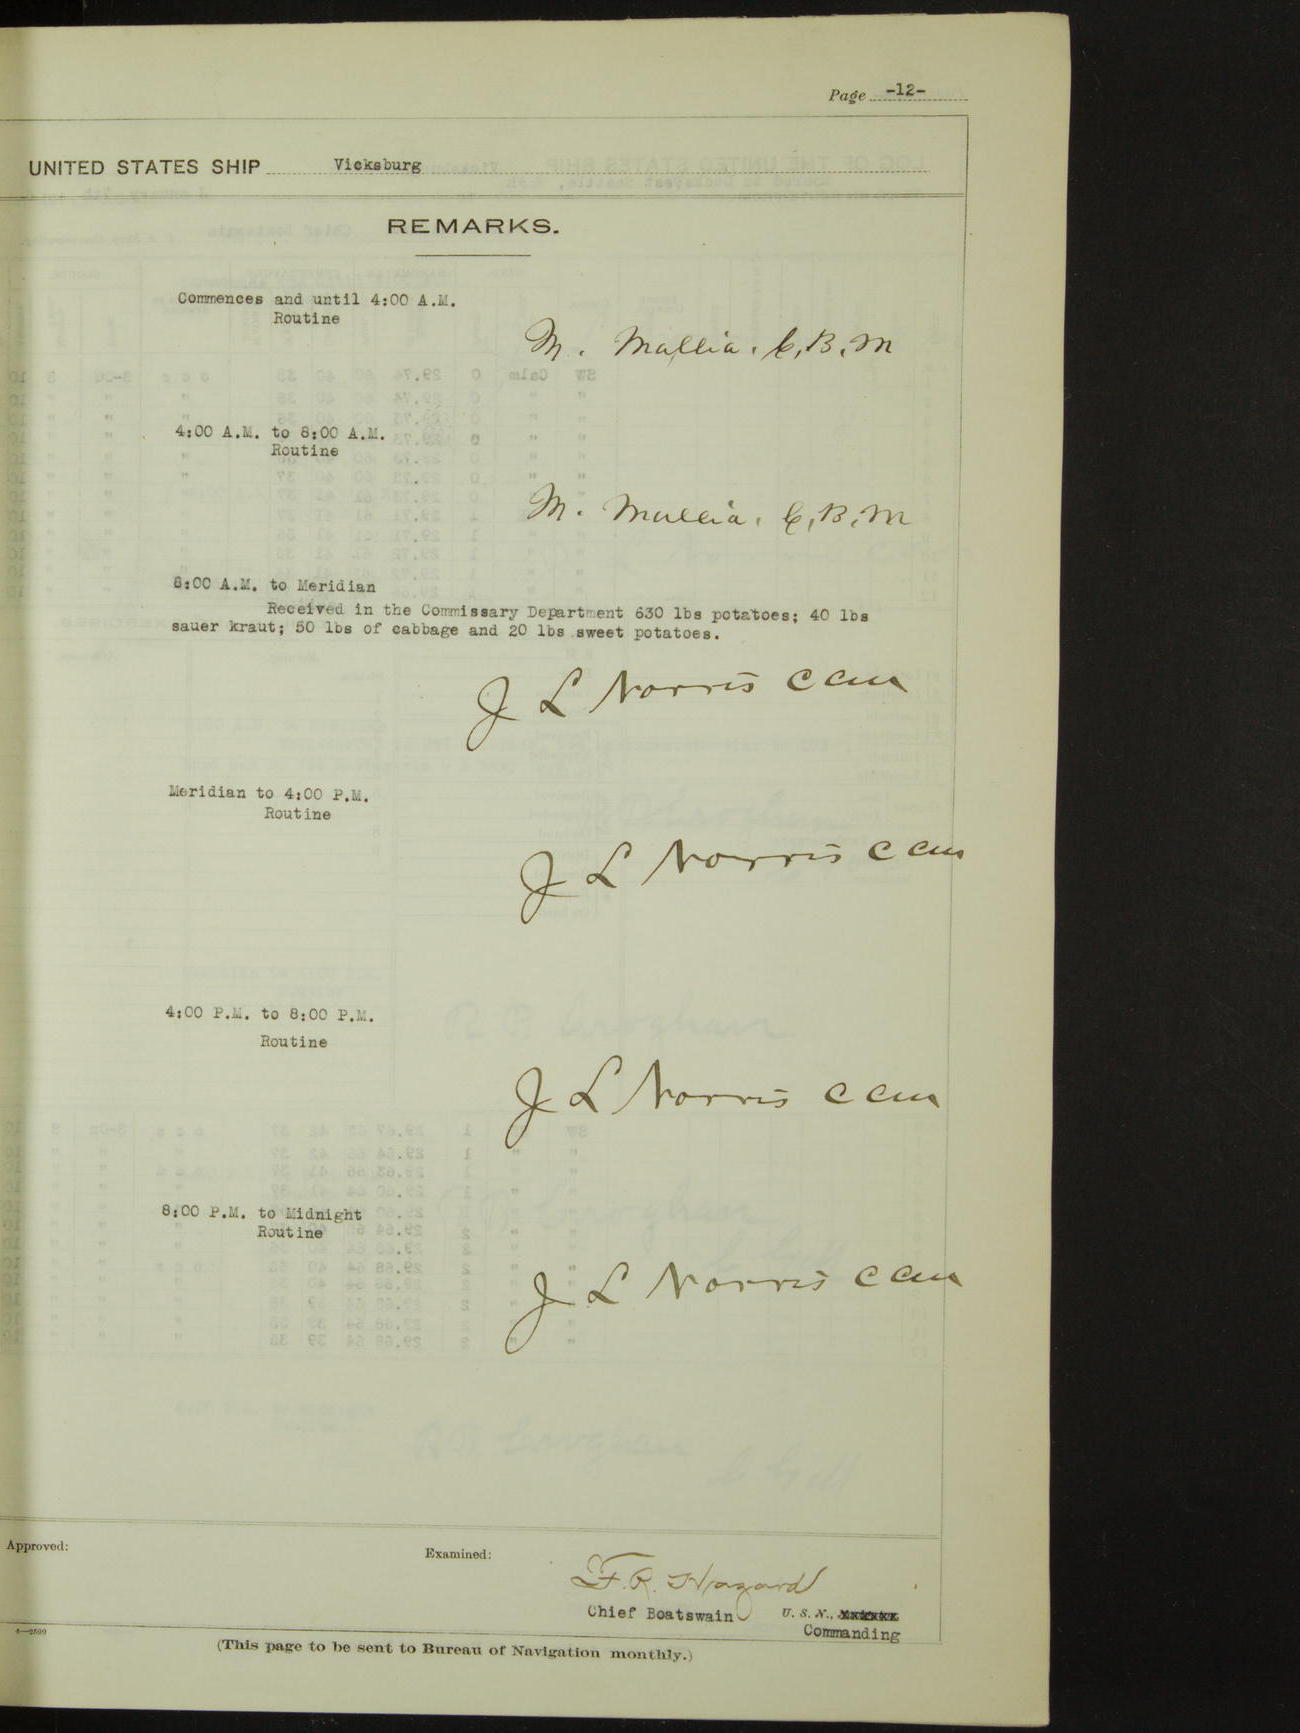 Page -12-
UNITED STATES SHIP Vicksburg
REMARKS.
Commences and until 4:00 A.M.
Routine
M. Mallia. C,B,M
4:00 A.M. to 8:00 A.M.
Routine
M. Mallia. C,B,M
8:00 A.M. to Meridian
Received in the Commissary Department 630 lbs potatoes; 40 lbs
sauer kraut; 50 lbs of cabbage and 20 lbs sweet potatoes.
J L Norris C C M
Meridian to 4:00 P.M.
Routine
J L Norris C C M
4:00 P.M. to 8:00 P.M.
Routine
J L Norris C C M
8:00 P.M. to Midnight
Routine
J L Norris C C M
Approved:
Examined:
F. R. Hazard
Chief Boatswain U. S. N.,
Commanding
(This page to be sent to Bureau of Navigation monthly.)